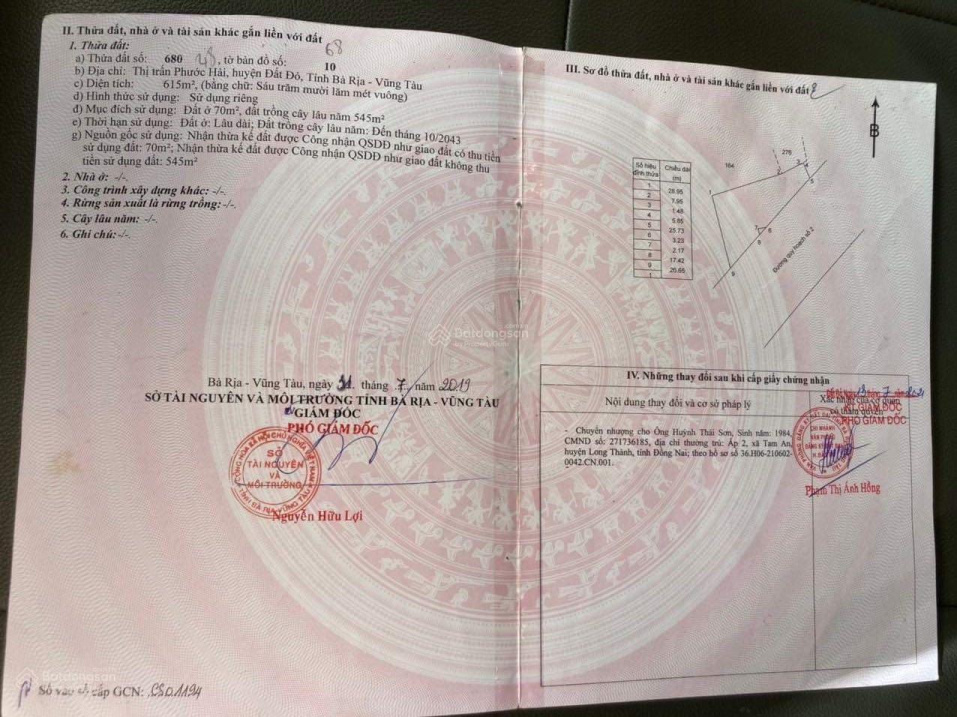 II. Thửa đất, nhà ở và tài sản khác gắn liền với đất
1. Thửa đất: 68
a) Thửa đất số: 680 , tờ bản đồ số: 10
b) Địa chỉ: Thị trấn Phước Hải, huyện Đất Đỏ, Tỉnh Bà Rịa - Vũng Tàu
c) Diện tích: 615m², (bằng chữ: Sáu trăm mười lăm mét vuông)
d) Hình thức sử dụng: Sử dụng riêng
đ) Mục đích sử dụng: Đất ở 70m², đất trồng cây lâu năm 545m²
e) Thời hạn sử dụng: Đất ở: Lâu dài; Đất trồng cây lâu năm: Đến tháng 10/2043
g) Nguồn gốc sử dụng: Nhận thừa kế đất được Công nhận QSDĐ như giao đất có thu tiền
sử dụng đất: 70m²; Nhận thừa kế đất được Công nhận QSDĐ như giao đất không thu
tiền sử dụng đất: 545m²
2. Nhà ở: -/-.
3. Công trình xây dựng khác: -/-.
4. Rừng sản xuất là rừng trồng: -/-.
5. Cây lâu năm: -/-.
6. Ghi chú: -/-.
Bà Rịa - Vũng Tàu, ngày 31 tháng 7 năm 2019
SỞ TÀI NGUYÊN VÀ MÔI TRƯỜNG TỈNH BÀ RỊA - VŨNG TÀU
GIÁM ĐỐC
PHÓ GIÁM ĐỐC
SỞ
TÀI NGUYÊN
VÀ
MÔI TRƯỜNG
Nguyễn Hữu Lợi
Số vào sổ cấp GCN: CS01194
III. Sơ đồ thửa đất, nhà ở và tài sản khác gắn liền với đất
B
Số hiệu đỉnh thửa
Chiều dài (m)
1
28.95
2
7.95
3
1.48
4
5.65
5
25.73
6
3.23
7
2.17
8
17.42
9
20.65
1
164
276
1
2
3
4
5
6
7
8
9
Đường quy hoạch số 2
IV. Những thay đổi sau khi cấp giấy chứng nhận
Nội dung thay đổi và cơ sở pháp lý
Xác nhận của cơ quan
có thẩm quyền
KT.GIÁM ĐỐC
PHÓ GIÁM ĐỐC
Chuyển nhượng cho Ông Huỳnh Thái Sơn, Sinh năm: 1984,
CMND số: 271736185, địa chỉ thường trú: Ấp 2, xã Tam An,
huyện Long Thành, tỉnh Đồng Nai; theo hồ sơ số 36.H06-210602-
0042.CN.001.
CHI NHÁNH
VĂN PHÒNG
Phạm Thị Ánh Hồng
Batdongsan
Batdongsan